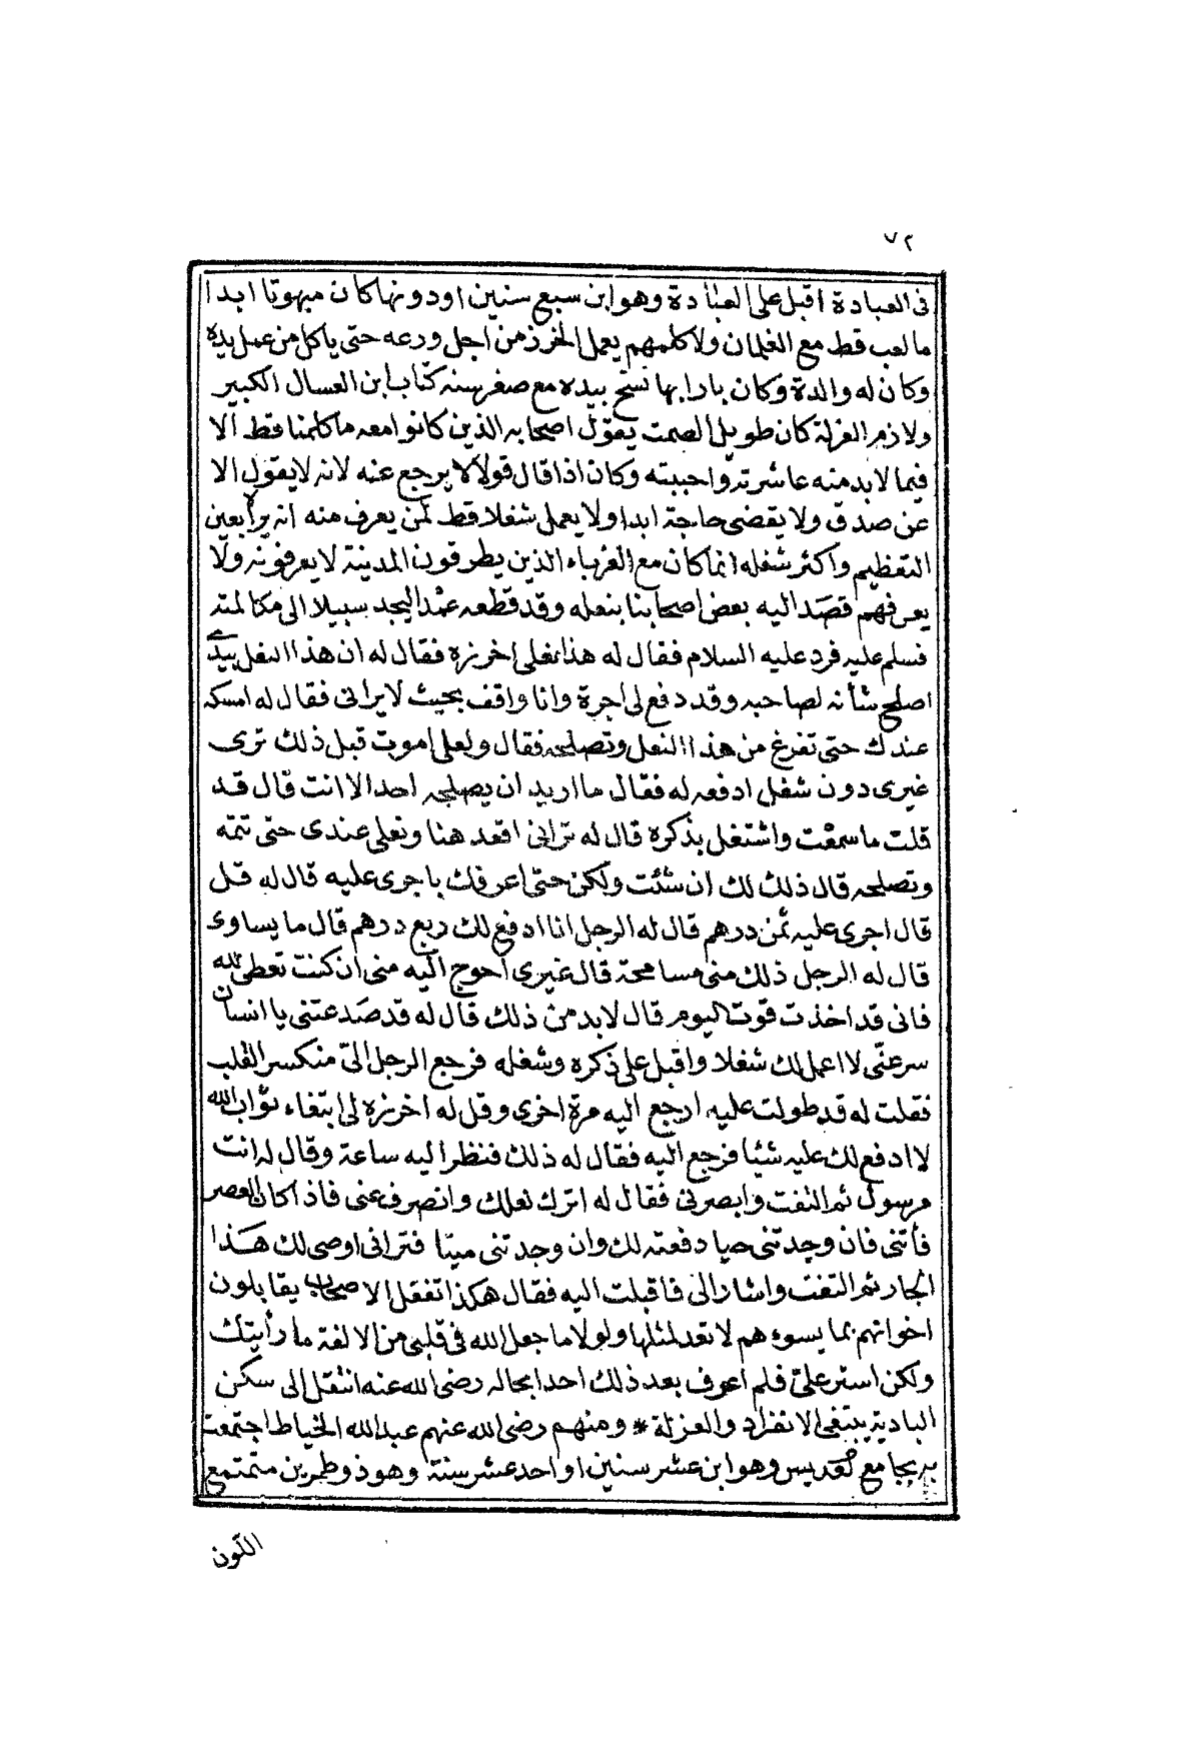 ٧٢
فى العبادة اقبل على العبادة وهو ابن سبع سنين او دونها كان مبهوتا ابدا
ما لعب قط مع الغلمان ولا كلمهم يعمل الخرز من اجل ورعه حتى ياكل من عمل يده
وكان له والدة وكان بارا بها نسخ بيده مع صغر سنه كتاب ابن العسال الكبير
ولازم العزلة كان طويل الصمت يقول اصحابه الذين كانوا معه ما كلمنا قط الا
فيما لا بد منه عاشرته واحببته وكان اذا قال قولا لا يرجع عنه لانه لا يقول الا
عن صدق ولا يقضى حاجة ابدا ولا يعمل شغلا قط لمن يعرف منه انه يراه بعين
التعظيم واكثر شغله انما كان مع الغرباء الذين يطرقون المدينة لا يعرفونه ولا
يعرفهم قصد اليه بعض اصحابنا بنعله وقد قطعه عمدا ليجد سبيلا الى مكالمته
فسلم عليه فرد عليه السلام فقال له هذا نعلى اخرزه فقال له ان هذا النعل بيدى
اصلح شأنه لصاحبه وقد دفع لى اجرة وانا واقف بحيث لا يرانى فقال له امسكه
عندك حتى تفرغ من هذا النعل وتصلحه فقال ولعلى اموت قبل ذلك ترى
غيرى دون شغل ادفعه له فقال ما اريد ان يصلحه احد الا انت قال قد
قلت ما سمعت واشتغل بذكره قال له ترانى اقعد هنا ونعلى عندى حتى تتمه
وتصلحه قال ذلك لك ان شئت ولكن حتى اعرفك باجرى عليه قال له قل
قال اجرى عليه ثمن درهم قال له الرجل انا ادفع لك ربع درهم قال ما يساوى
قال له الرجل ذلك منى مسامحة قال غيرى احوج اليه منى ان كنت تعطى لله
فانى قد اخذت قوت اليوم قال لا بد من ذلك قال له قد صدعتنى يا انسان
سر عنّى لا اعمل لك شغلا واقبل على ذكره وشغله فرجع الرجل الىّ منكسر القلب
فقلت له قد طولت عليه ارجع اليه مرة اخرى وقل له اخرزه لى ابتغاء ثواب الله
لا ادفع لك عليه شيئا فرجع اليه فقال له ذلك فنظر اليه ساعة وقال له انت
مرسول ثم التفت وابصرنى فقال له اترك نعلك وانصرف عنى فاذا كان العصر
فأتنى فان وجدتنى حيا دفعته لك وان وجدتنى ميتا فترانى اوصى لك هذا
الجار ثم التفت واشار الى فاقبلت اليه فقال هكذا تفعل الاصحاب يقابلون
اخوانهم بما يسوءهم لا تعد لمثلها ولولا ما جعل الله فى قلبى من الالفة ما رأيتك
ولكن استر علىّ فلم اعرف بعد ذلك احدا بحاله رضى الله عنه انتقل الى سكن
البادية يبتغى الانفراد والعزلة * ومنهم رضى الله عنهم عبد الله الخياط اجتمعت
به بجامع عديس وهو ابن عشر سنين او احد عشر سنة وهو ذو طمرين متمتمع
اللون